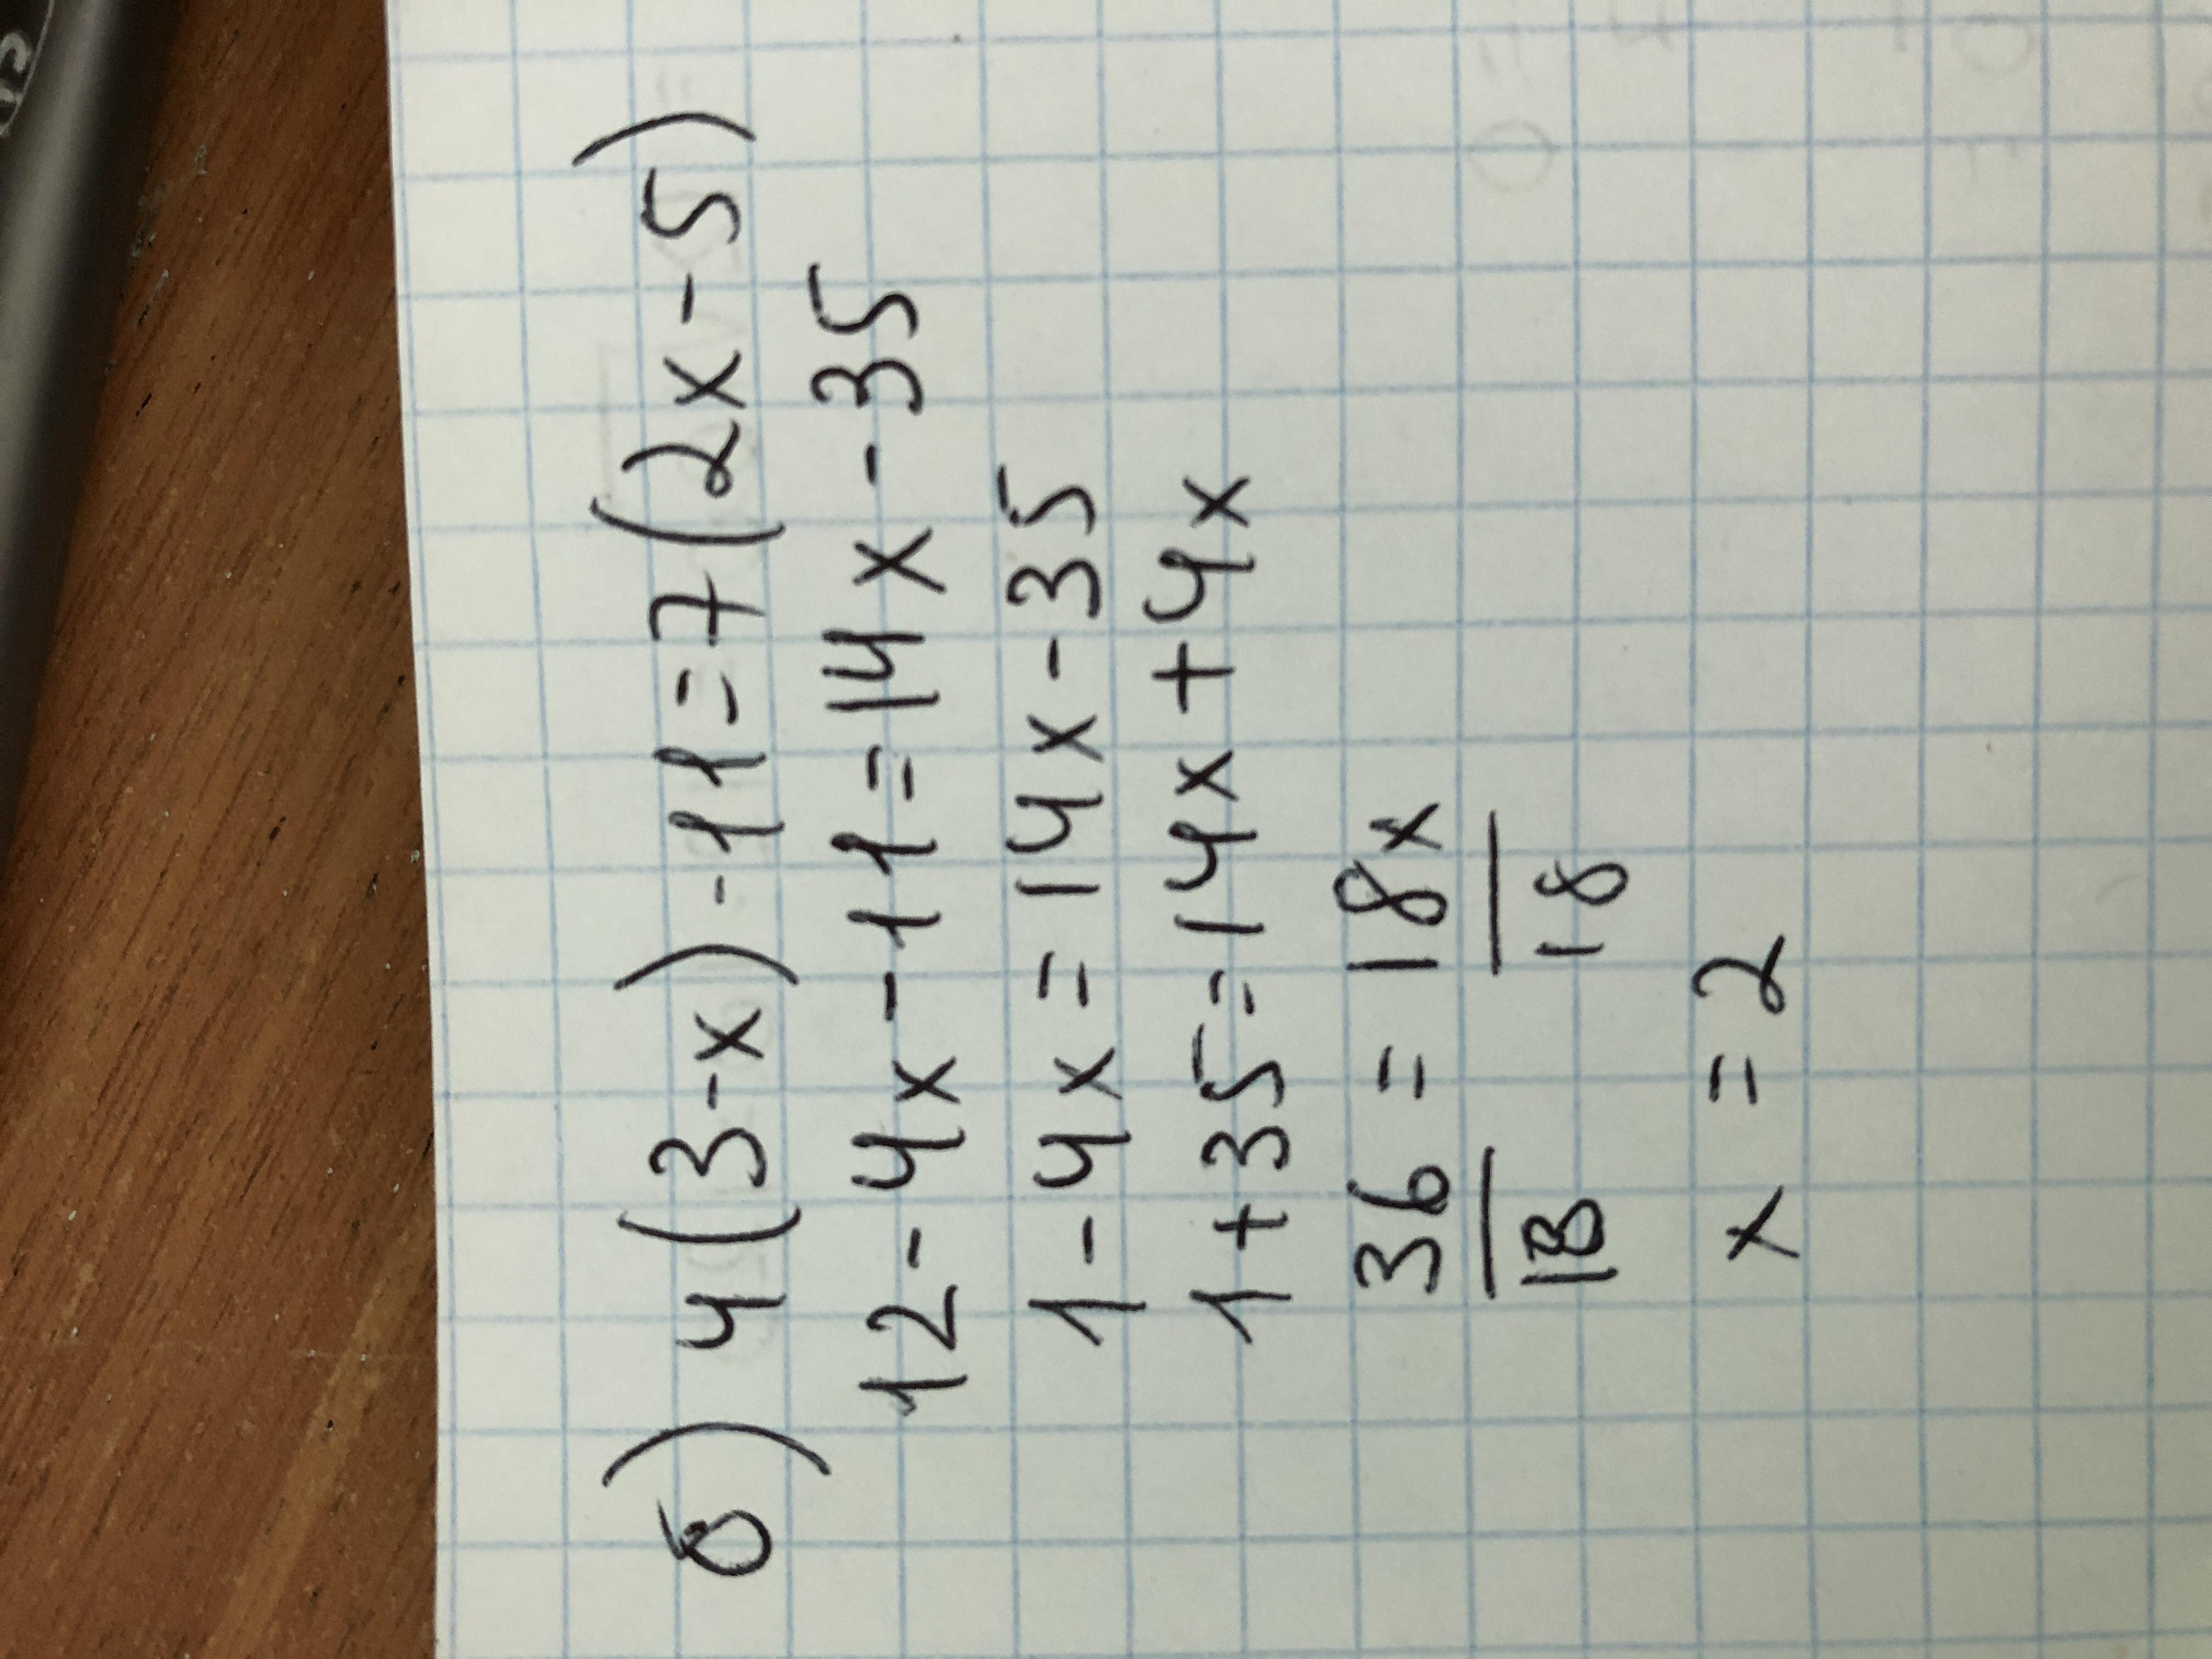 б) 4(3-x)-11=7(2x-5)
12-4x-11=14x-35
1-4x=14x-35
1+35=14x+4x
36 = 18x
18 18
x = 2